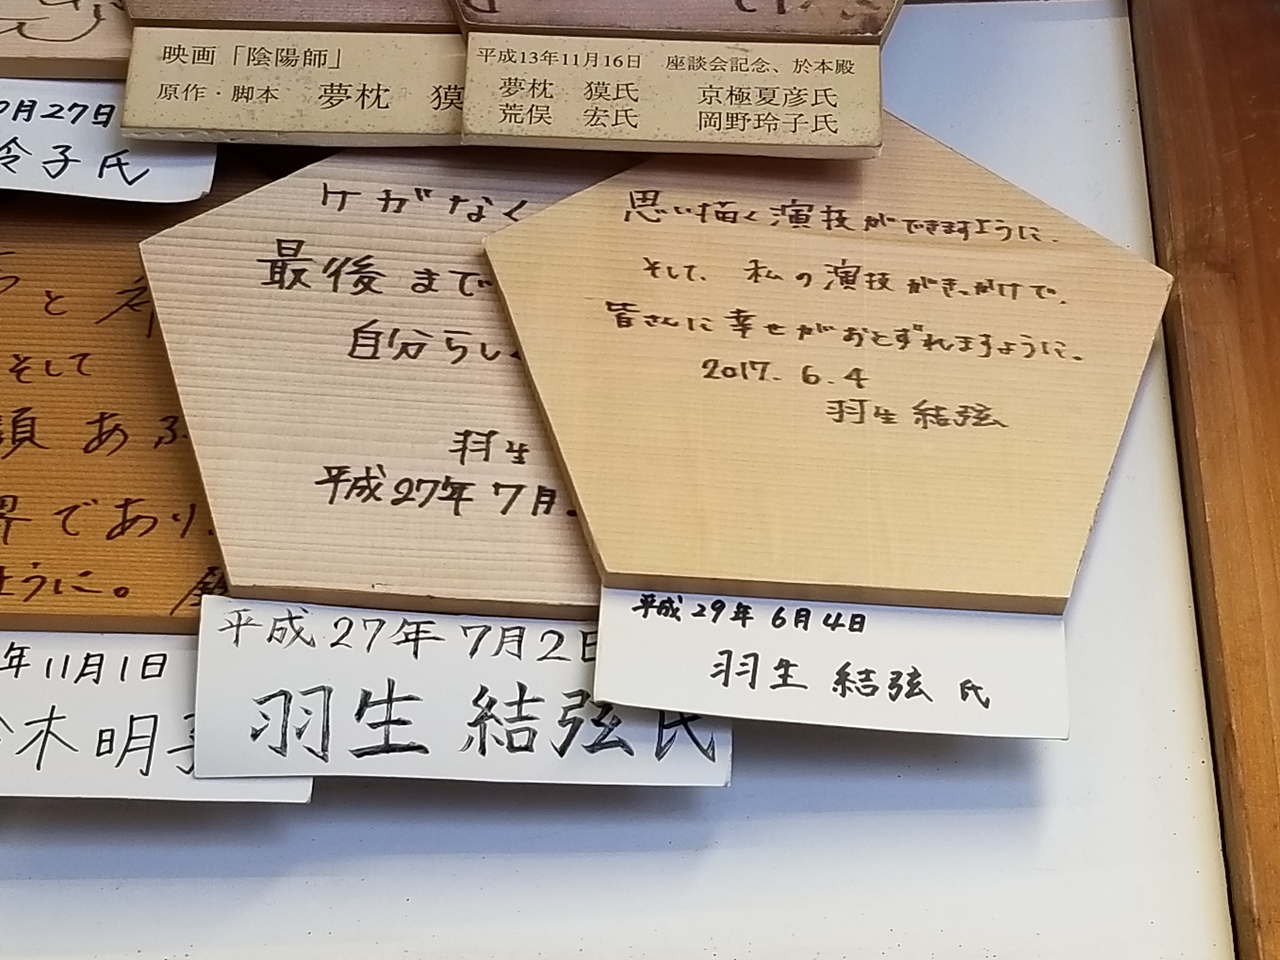 映画「陰陽師」
原作・脚本 夢枕 獏
平成13年11月16日 座談会記念、於本殿
夢枕 獏氏 京極夏彦氏
荒俣 宏氏 岡野玲子氏
月27日
玲子氏
ケガなく
最後まで
自分らしく
羽生
平成27年7月
平成27年7月2日
羽生 結弦氏
思い描く演技ができますように。
そして、私の演技がきっかけで、
皆さんに幸せがおとずれますように。
2017. 6. 4
羽生結弦
平成29年6月4日
羽生 結弦 氏
と
そして
顔あふ
界であり
ように。
年11月1日
木明子